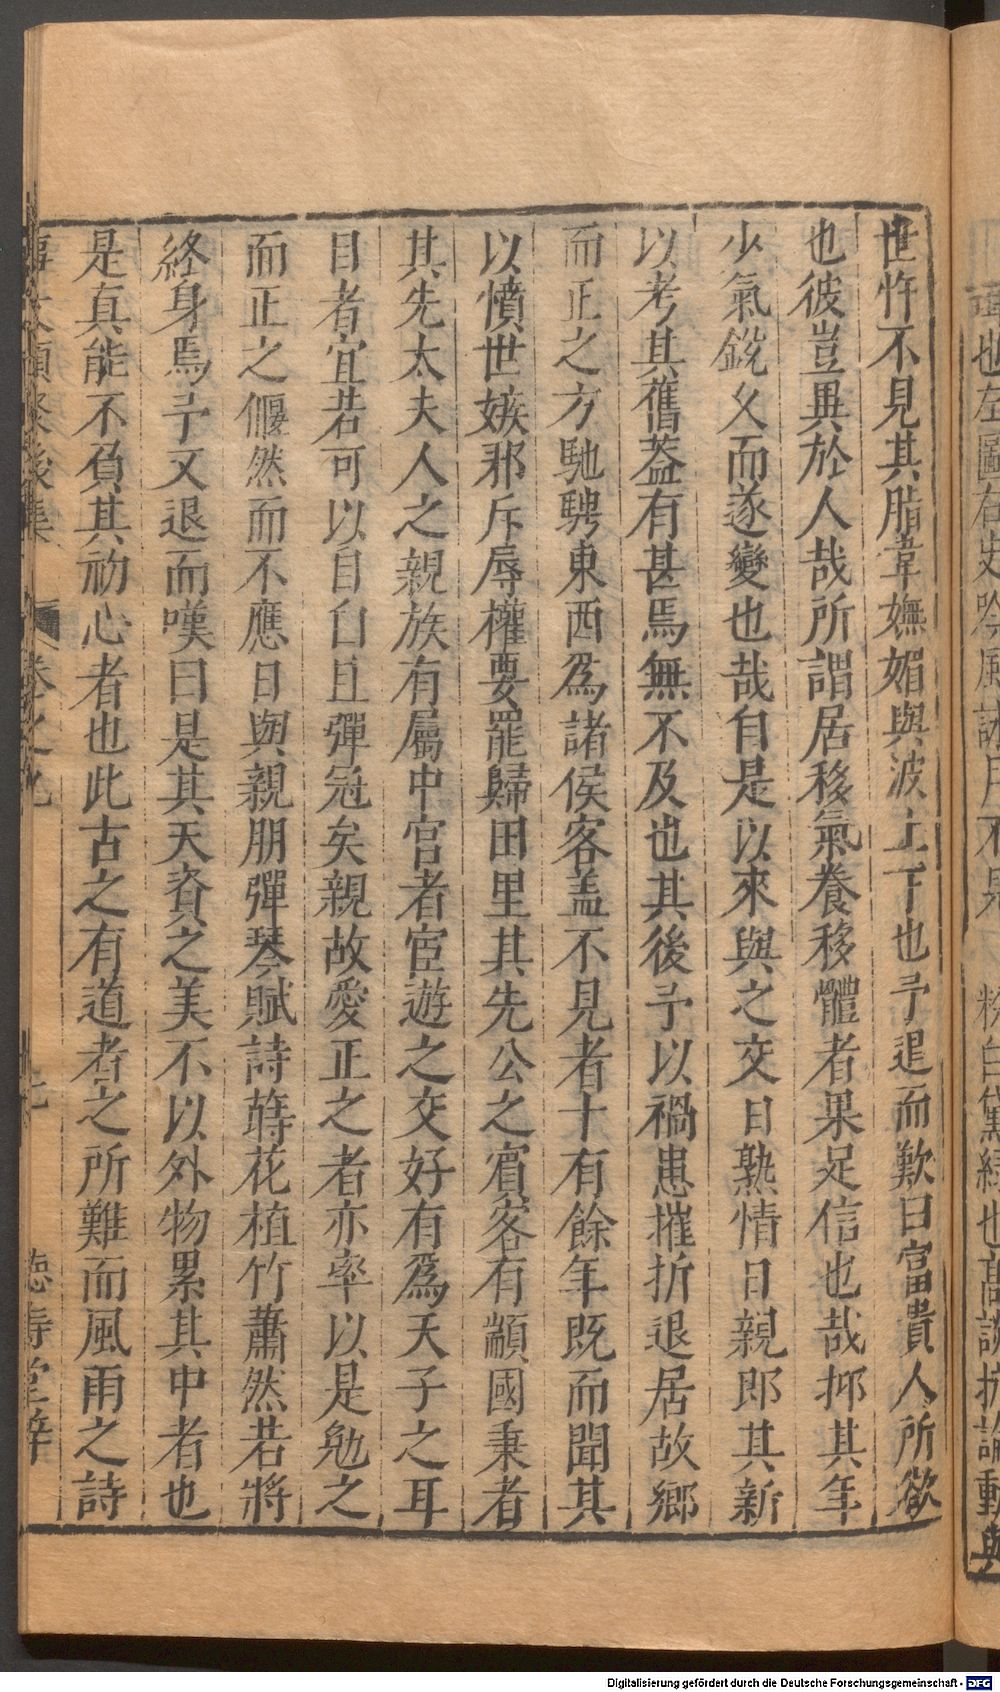 世忤不見其脂韋嫵媚與波上下也予退而歎曰富貴人所欲
也彼豈異於人哉所謂居移氣養移體者果足信也哉抑其年
少氣銳久而遂變也哉自是以來與之交日熟情日親即其新
以考其舊蓋有甚焉無不及也其後予以禍患摧折退居故鄉
而正之方馳騁東西爲諸侯客盖不見者十有餘年既而聞其
以憤世嫉邪斥辱權要罷歸田里其先公之賓客有顓國秉者
其先太夫人之親族有屬中宫者宦遊之交好有爲天子之耳
目者宜若可以自白且彈冠矣親故愛正之者亦率以是勉之
而正之偃然而不應日與親朋彈琴賦詩蒔花植竹蕭然若將
終身焉予又退而嘆曰是其天資之美不以外物累其中者也
是真能不負其初心者也此古之有道者之所難而風雨之詩
事文類聚後集 卷之九 德壽堂梓
也左圖右史吟風詠月不是 粉白黛綠也高談抗論動與
Digitalisierung gefördert durch die Deutsche Forschungsgemeinschaft - DFG